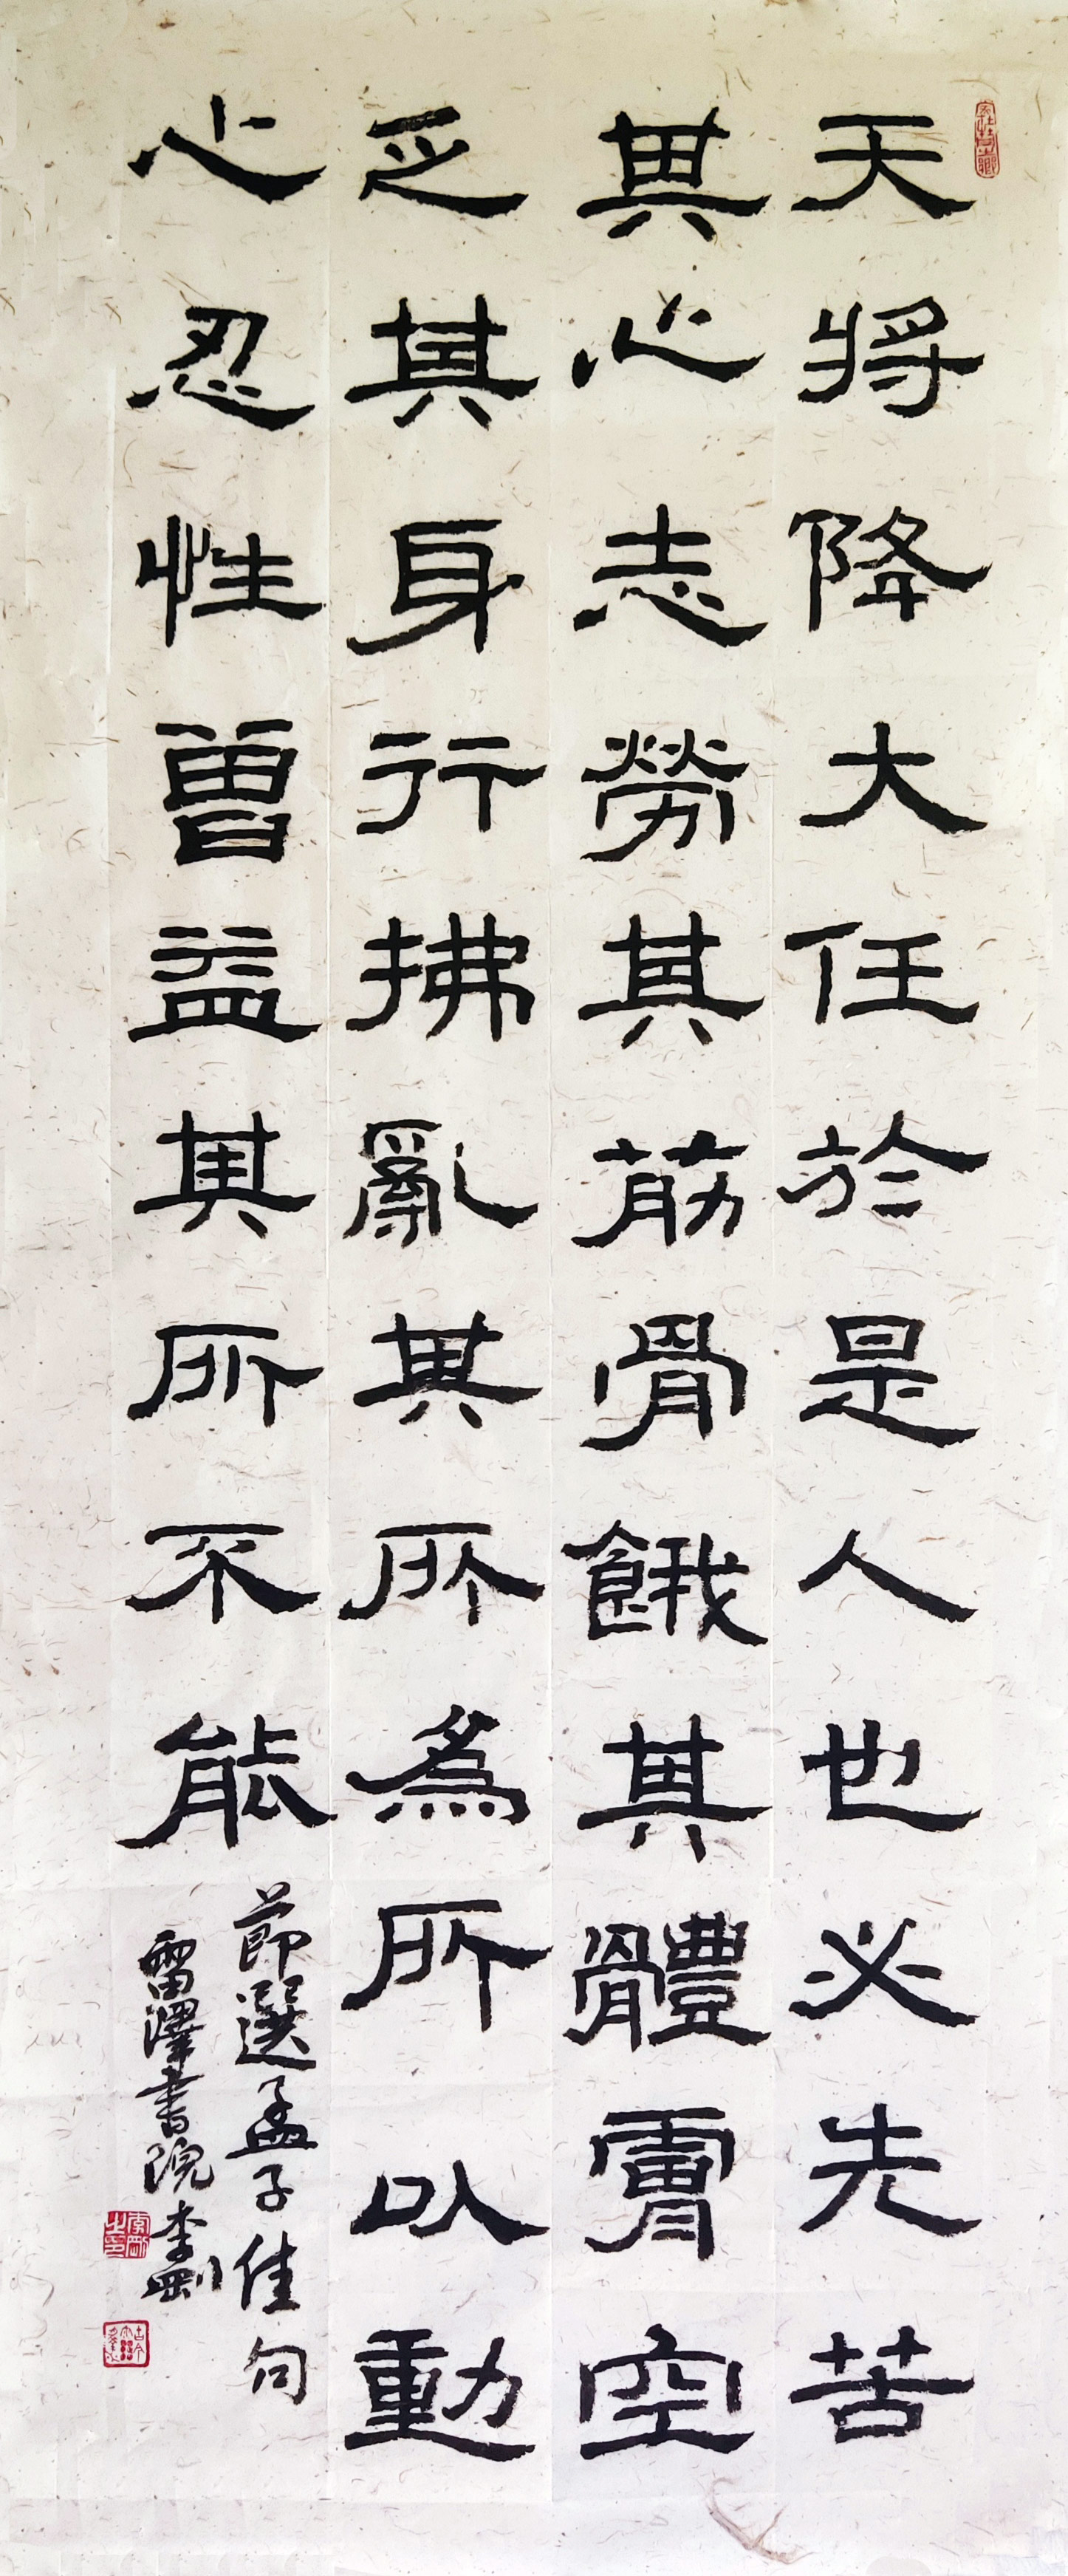 天将降大任於是人也必先苦
其心志勞其筋骨餓其體膚空
乏其身行拂亂其所為所以動
心忍性曾益其所不能
節選孟子佳句
雷澤書院李剛
李剛之印